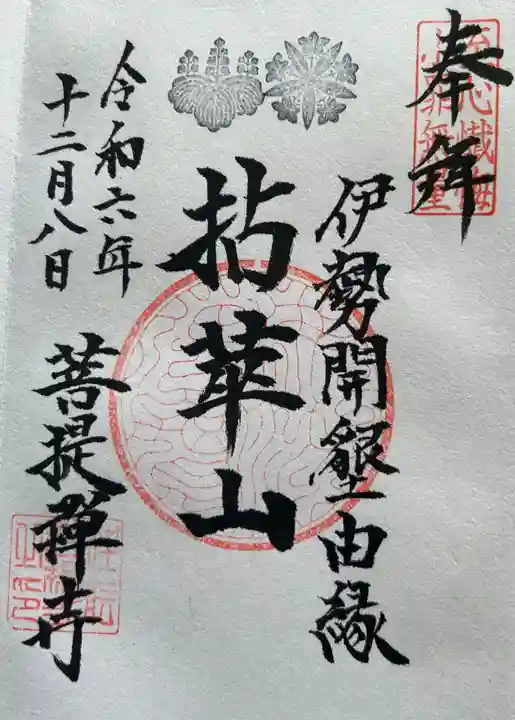 奉拜
伊勢開墾由緣
拈華山
令和六年
十二月八日
菩提禅寺